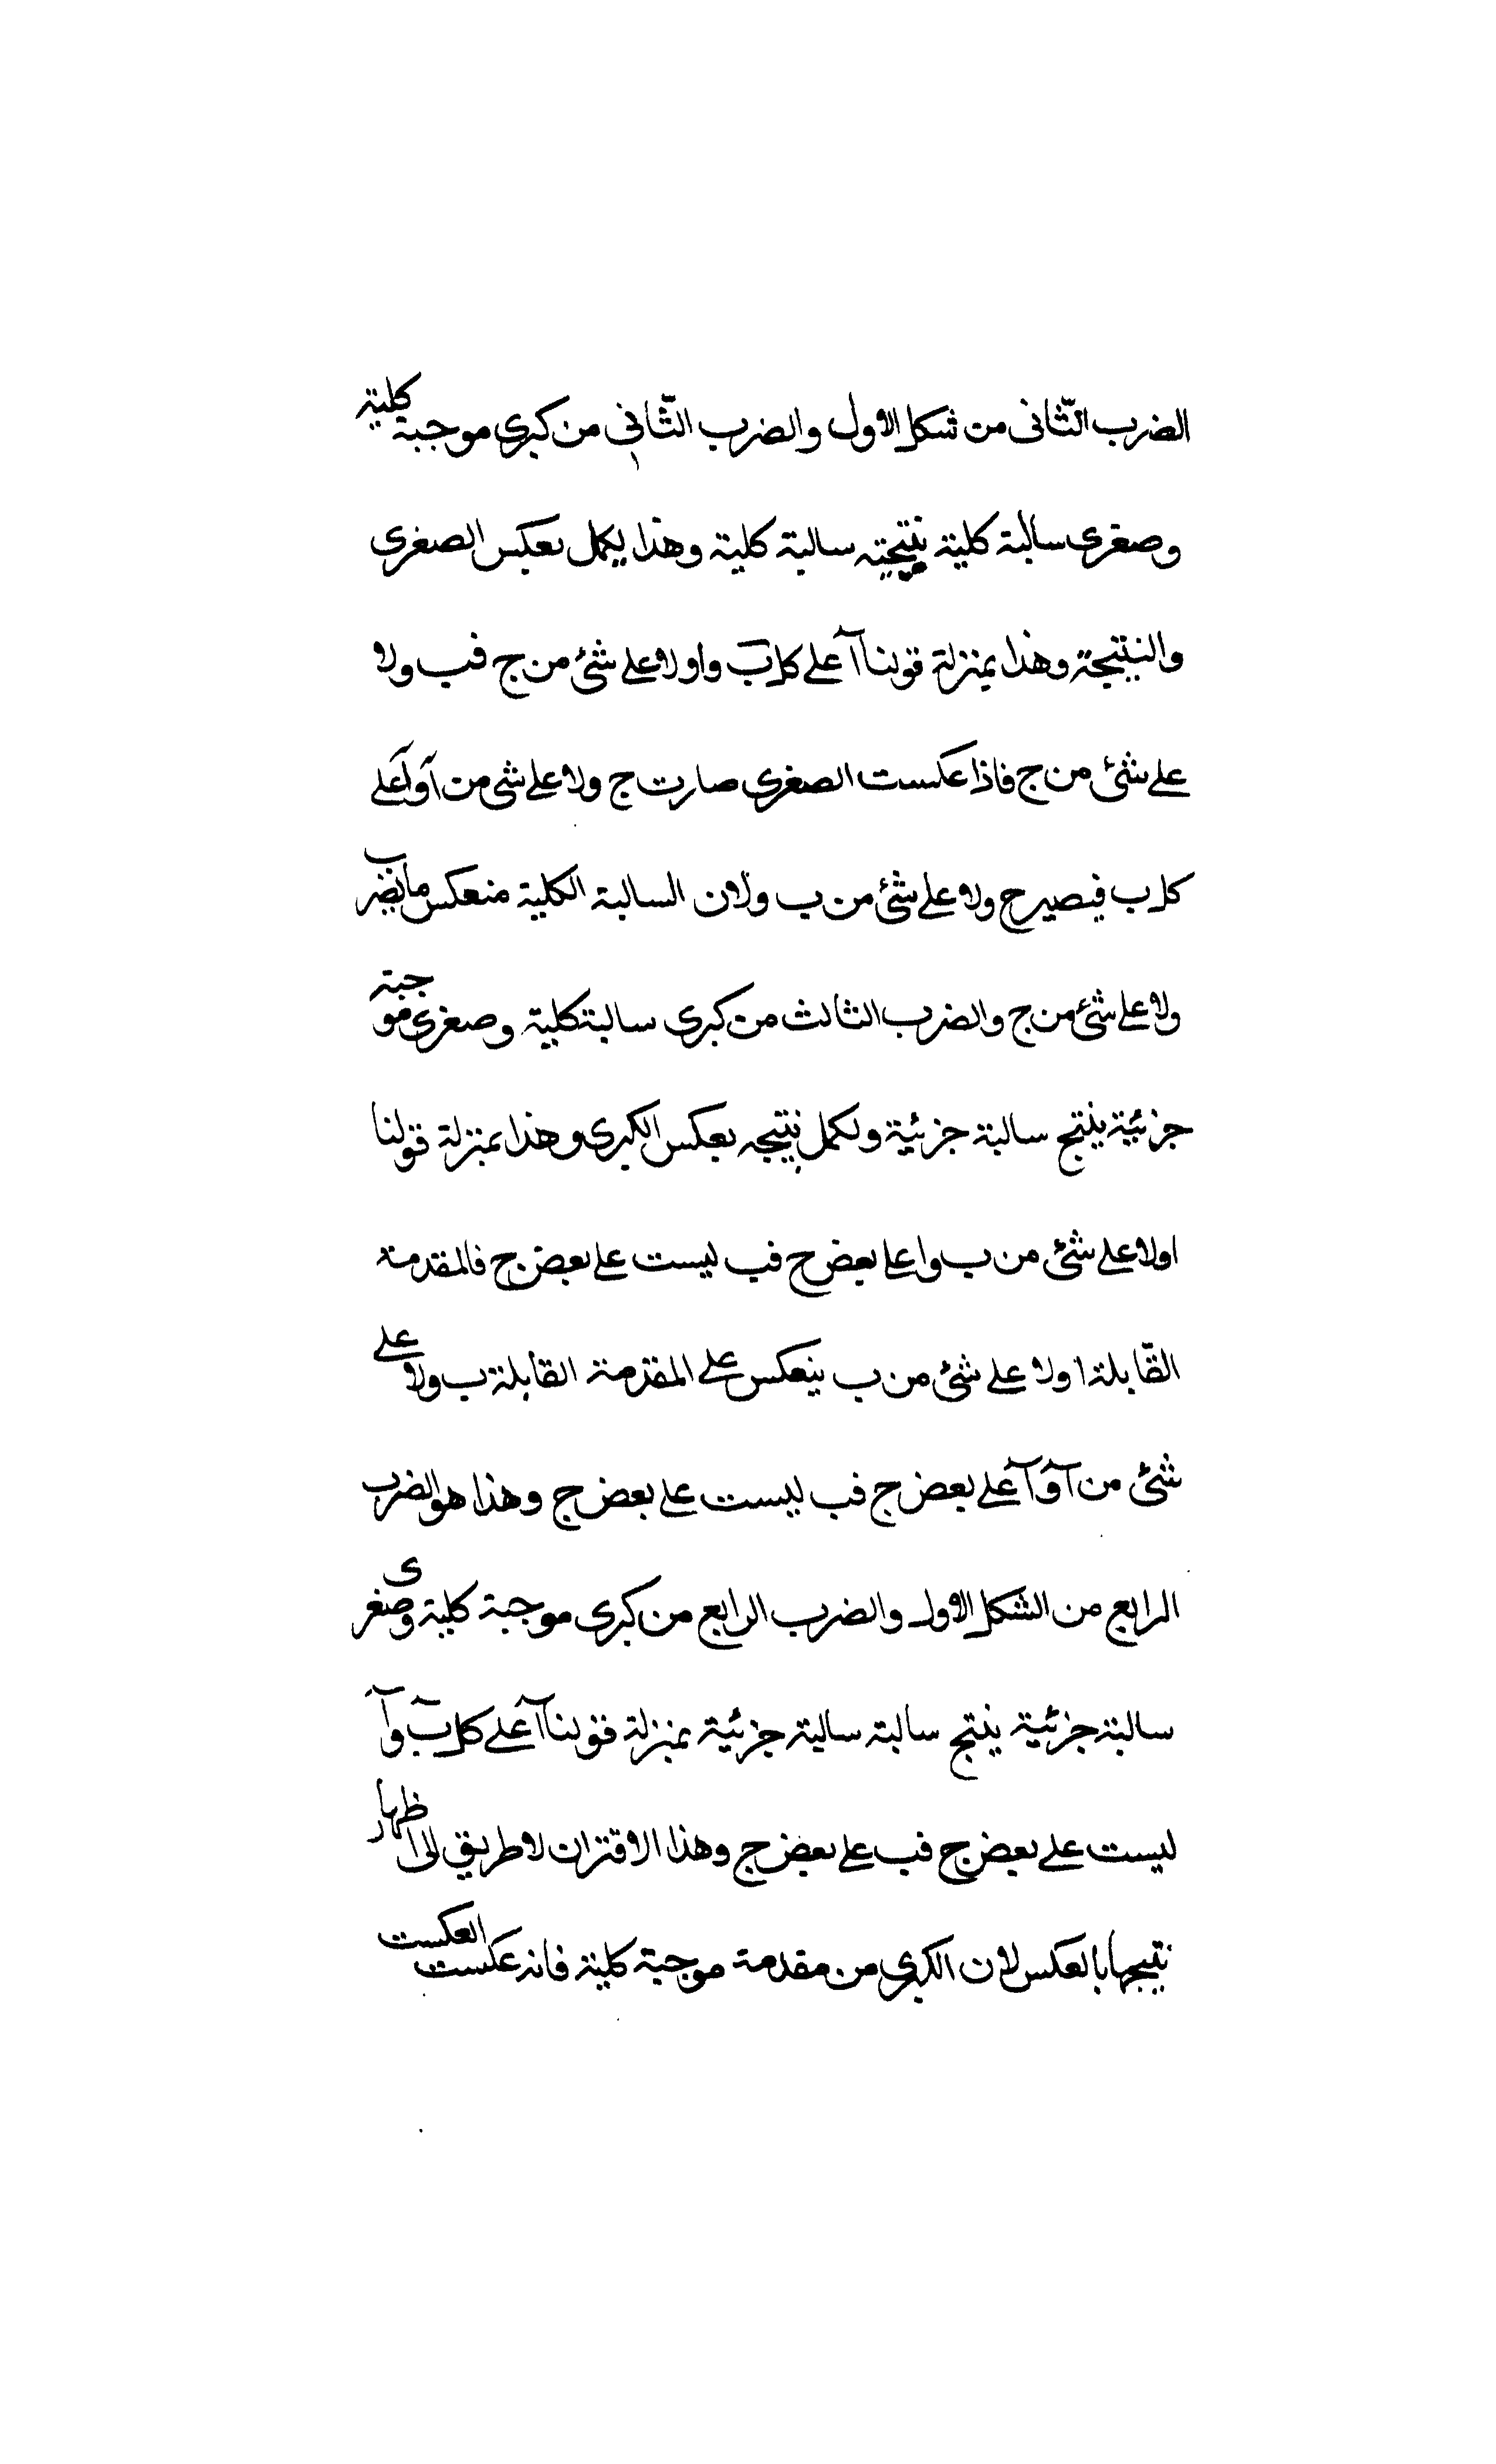 الضرب الثّانى من شكل الاول والضرب الثّانى من كبرى موجبة كلية
وصغرى سالبة كلية نتيجته سالبة كلية وهذا يكمل بعكس الصغرى
والنتيجة وهذا بمنزلة قولنا آ على كل ب واولا على شئ من ج فب ولا
على شئ من ج فاذا عكست الصغرى صارت ج ولا على شى من آ وآ على
كل ب فيصير ج ولا على شئ من ب ولان السالبة الكلية منعكس ما بضرب
ولا على شئ من ج والضرب الثالث من كبرى سالبة كلية وصغرى موجبة
جزئية ينتج سالبة جزئية ولكمل نتيجه بعكس الكبرى وهذا بمنزلة قولنا
اولا على شئ من ب وا على بعض ج فب ليست على بعض ج فالمقدمة
القّابلة ا ولا على شئ من ب ينعكس على المقدمة القابلة ب ولا على
شئ من آ وآ على بعض ج فب ليست على بعض ج وهذا هو الضرب
الرابع من الشكل الاول والضرب الرابع من كبرى موجبة كلية وصغرى
سالبة جزئية ينتج سالبة سالبة جزئية بمنزلة فقولنا آ على كل ب وآ
ليست على بعض ج فب على بعض ج وهذا الاقتران لا طريق الى اظهار
نتيجها بالعكس لان الكبرى من مقدمة موجبة كلية فانه عكست العكست